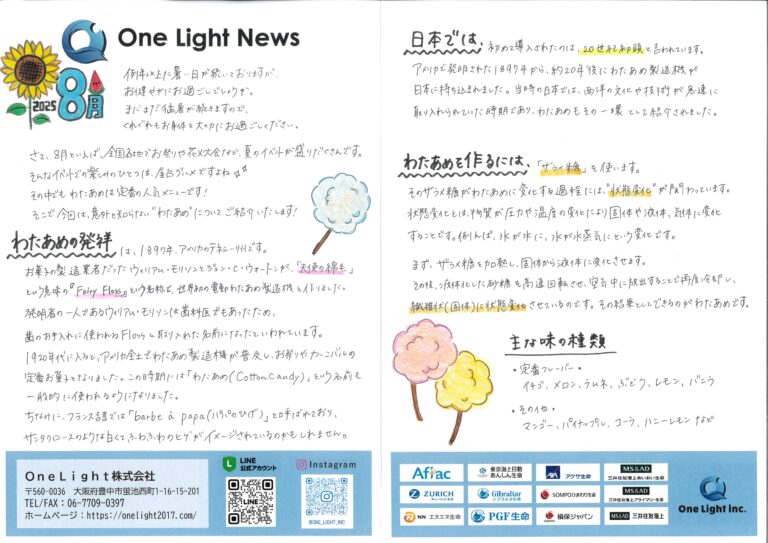 One Light News
2025
8月
例年以上に暑い日が続いておりますが、
お健やかにお過ごしでしょうか。
まだまだ猛暑が続きますので、
くれぐれもお身体を大切にお過ごしください。
さて、8月といえば、全国各地でお祭りや花火大会など、夏のイベントが盛りだくさんです。
そんなイベントでの楽しみのひとつは、屋台グルメですよね
その中でもわたあめは定番の人気メニューです!
そこで今回は、意外と知らない"わたあめ"についてご紹介いたします!
わたあめの発祥は、1897年、アメリカのテネシー州です。
お菓子の製造業者だったウィリアム・モリソンとジョン・C・ウォートンが、「天使の綿毛」
という意味の『Fairy Floss』という名称で、世界初の電動わたあめ製造機を作りました。
発明者の一人であるウィリアム・モリソンは歯科医でもあったため、
歯のお手入れに使われるFlossを取り入れた名前になったといわれています。
1920年代に入ると、アメリカ全土でわたあめ製造機が普及し、お祭りやカーニバルの
定番お菓子となりました。この時期には「わたあめ(Cotton Candy)」という名前も
一般的に使われるようになりました。
ちなみに、フランス語では「barbe à papa(パパのひげ)」とも呼ばれており、
サンタクロースのような白くて、ふわふわのヒゲがイメージされているのかもしれません。
OneLight株式会社
〒560-0036 大阪府豊中市蛍池西町1-16-15-201
TEL/FAX:06-7709-0397
ホームページ:https://onelight2017.com/
LINE
公式アカウント
Instagram
@ONE_LIGHT_INC
日本では、初めて導入されたのは、20世紀初頭と言われています。
アメリカで発明された1897年から、約20年後にわたあめ製造機が
日本に持ち込まれました。当時の日本では、西洋の文化や技術が急速に
取り入れられていた時期であり、わたあめもその一環として紹介されました。
わたあめを作るには、「ザラメ糖」を使います。
そのザラメ糖がわたあめに変化する過程には、"状態変化"が関わっています。
状態変化とは、物質が圧力や温度の変化により固体や液体、気体に変化
することです。例えば、氷が水に、水が水蒸気にという変化です。
まず、ザラメ糖を加熱し、固体から液体に変化させます。
その後、液体化した砂糖を高速回転させ、空気中に放出することで再度冷却し、
繊維状(固体)に状態変化させているのです。その結果としてできるのがわたあめです。
主な味の種類
・定番フレーバー
イチゴ、メロン、ラムネ、ぶどう、レモン、バニラ
・その他
マンゴー、パイナップル、コーラ、ハニーレモンなど
Aflac
東京海上日動
あんしん生命
アクサ生命
MS&AD
三井住友海上あいおい生命
ZURICH
Gibraltar
ジブラルタ生命
SOMPOひまわり生命
MS&AD
三井住友海上プライマリー生命
NN エヌエヌ生命
PGF生命
損保ジャパン
MS&AD 三井住友海上
One Light inc.